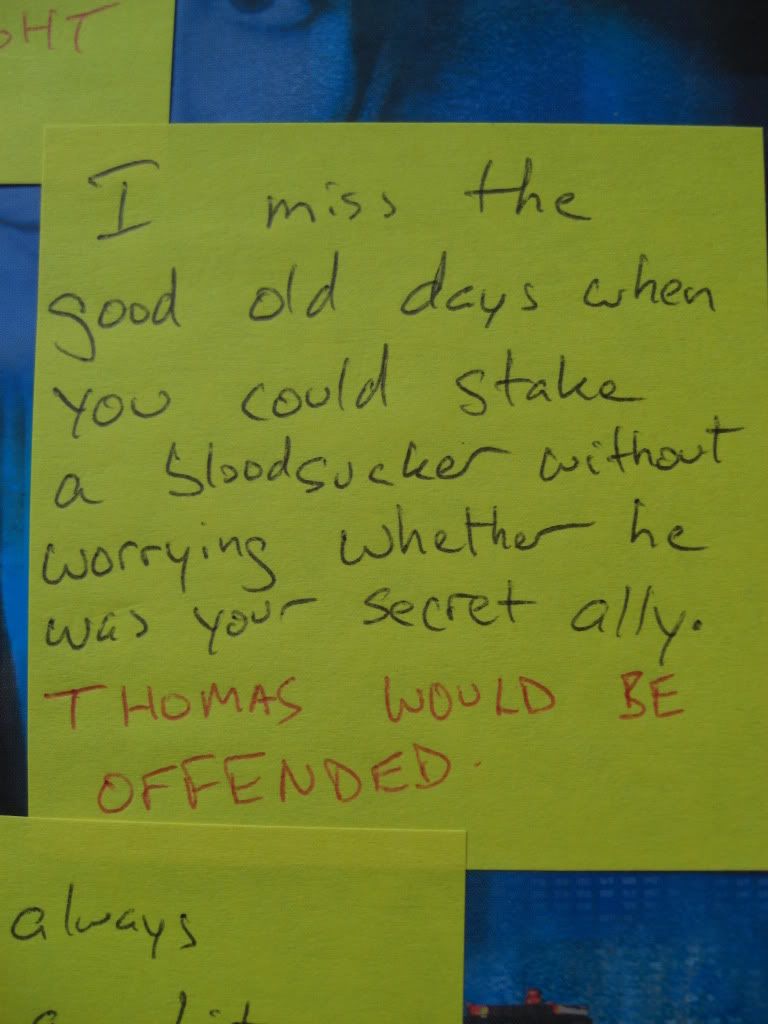 I miss the
good old days when
you could stake
a bloodsucker without
worrying whether he
was your secret ally.
THOMAS WOULD BE
OFFENDED.
always